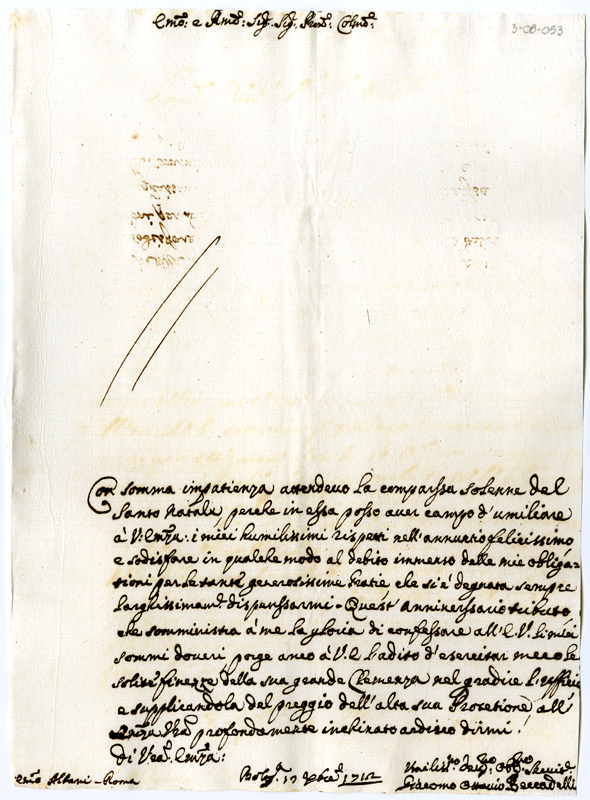 Em:o e Rmo: Sig.r Sig.r Pron: Colmo:
3-08-053
Con somma impatienza attendevo la comparssa solenne del
Santo Natale perche in essa posso aver campo d'umiliare
à V. Emza: i miei humilissimi rispetti nell'annuntio felicissimo
e sodisfare in qualche modo al debito immenso delle mie obligat-
tioni per le tante generosissime gratie che si è degnata sempre
larghissimam.te disspenssarmi - Quest'annierssario tributo
che somministra à me la gloria di confessare all'E.V. li miei
sommi doveri porge anco à V.E. l'adito d'esercitar meco le
solite finezze della sua grande Clemenza nel gradire l'ufficio
e supplicandola del preggio dell'alta sua Protetione all'
Emza Vra profondamente inchinato ardisco dirmi.
Di Vra. Emza:
Bolog.a 17 Xbre 1712
Emo Albani - Roma
Giacomo Ottavio Beccadelli